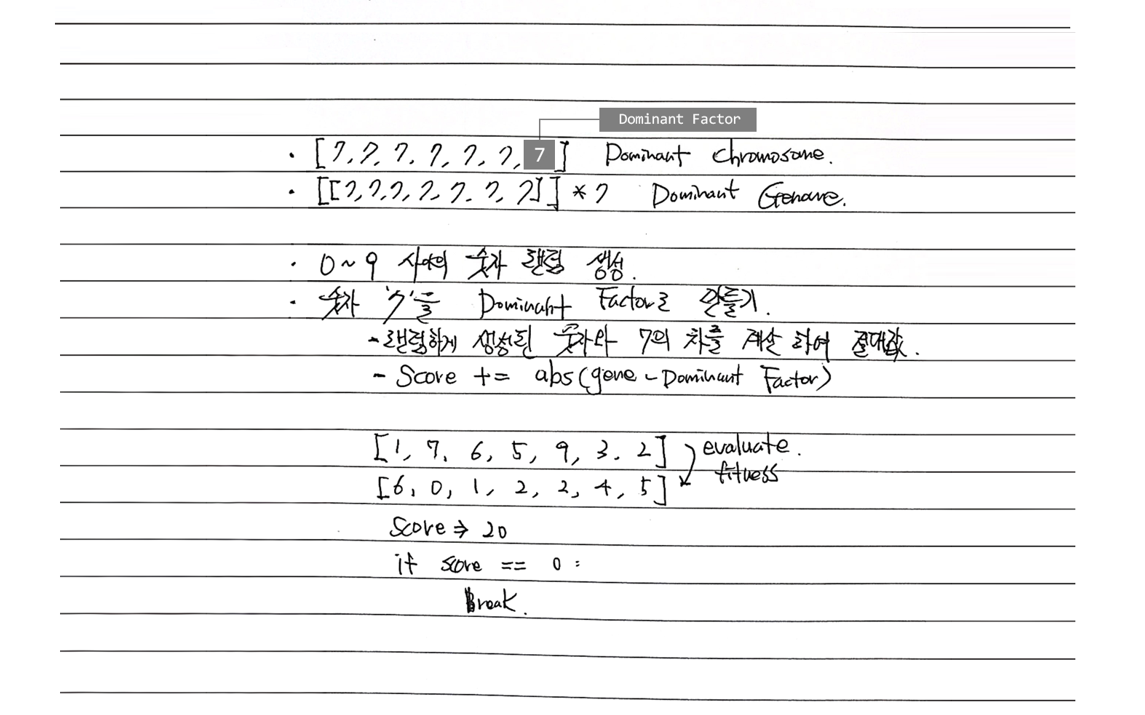 Dominant Factor
· [7, 7, 7, 7, 7, 7, 7] Dominant Chromosome.
· [[7,7,7,7,7,7,7]] * 7 Dominant Genome.
· 0~9 사이의 숫자 랜덤 생성.
· 숫자 '7'을 Dominant Factor로 만들기.
- 랜덤하게 생성된 숫자와 7의 차를 계산 하여 절대값.
- Score += abs(gene - Dominant Factor)
[1, 7, 6, 5, 9, 3, 2] evaluate.
fitness
[6, 0, 1, 2, 2, 4, 5]
Score ⇒ 20
if score == 0 :
Break.